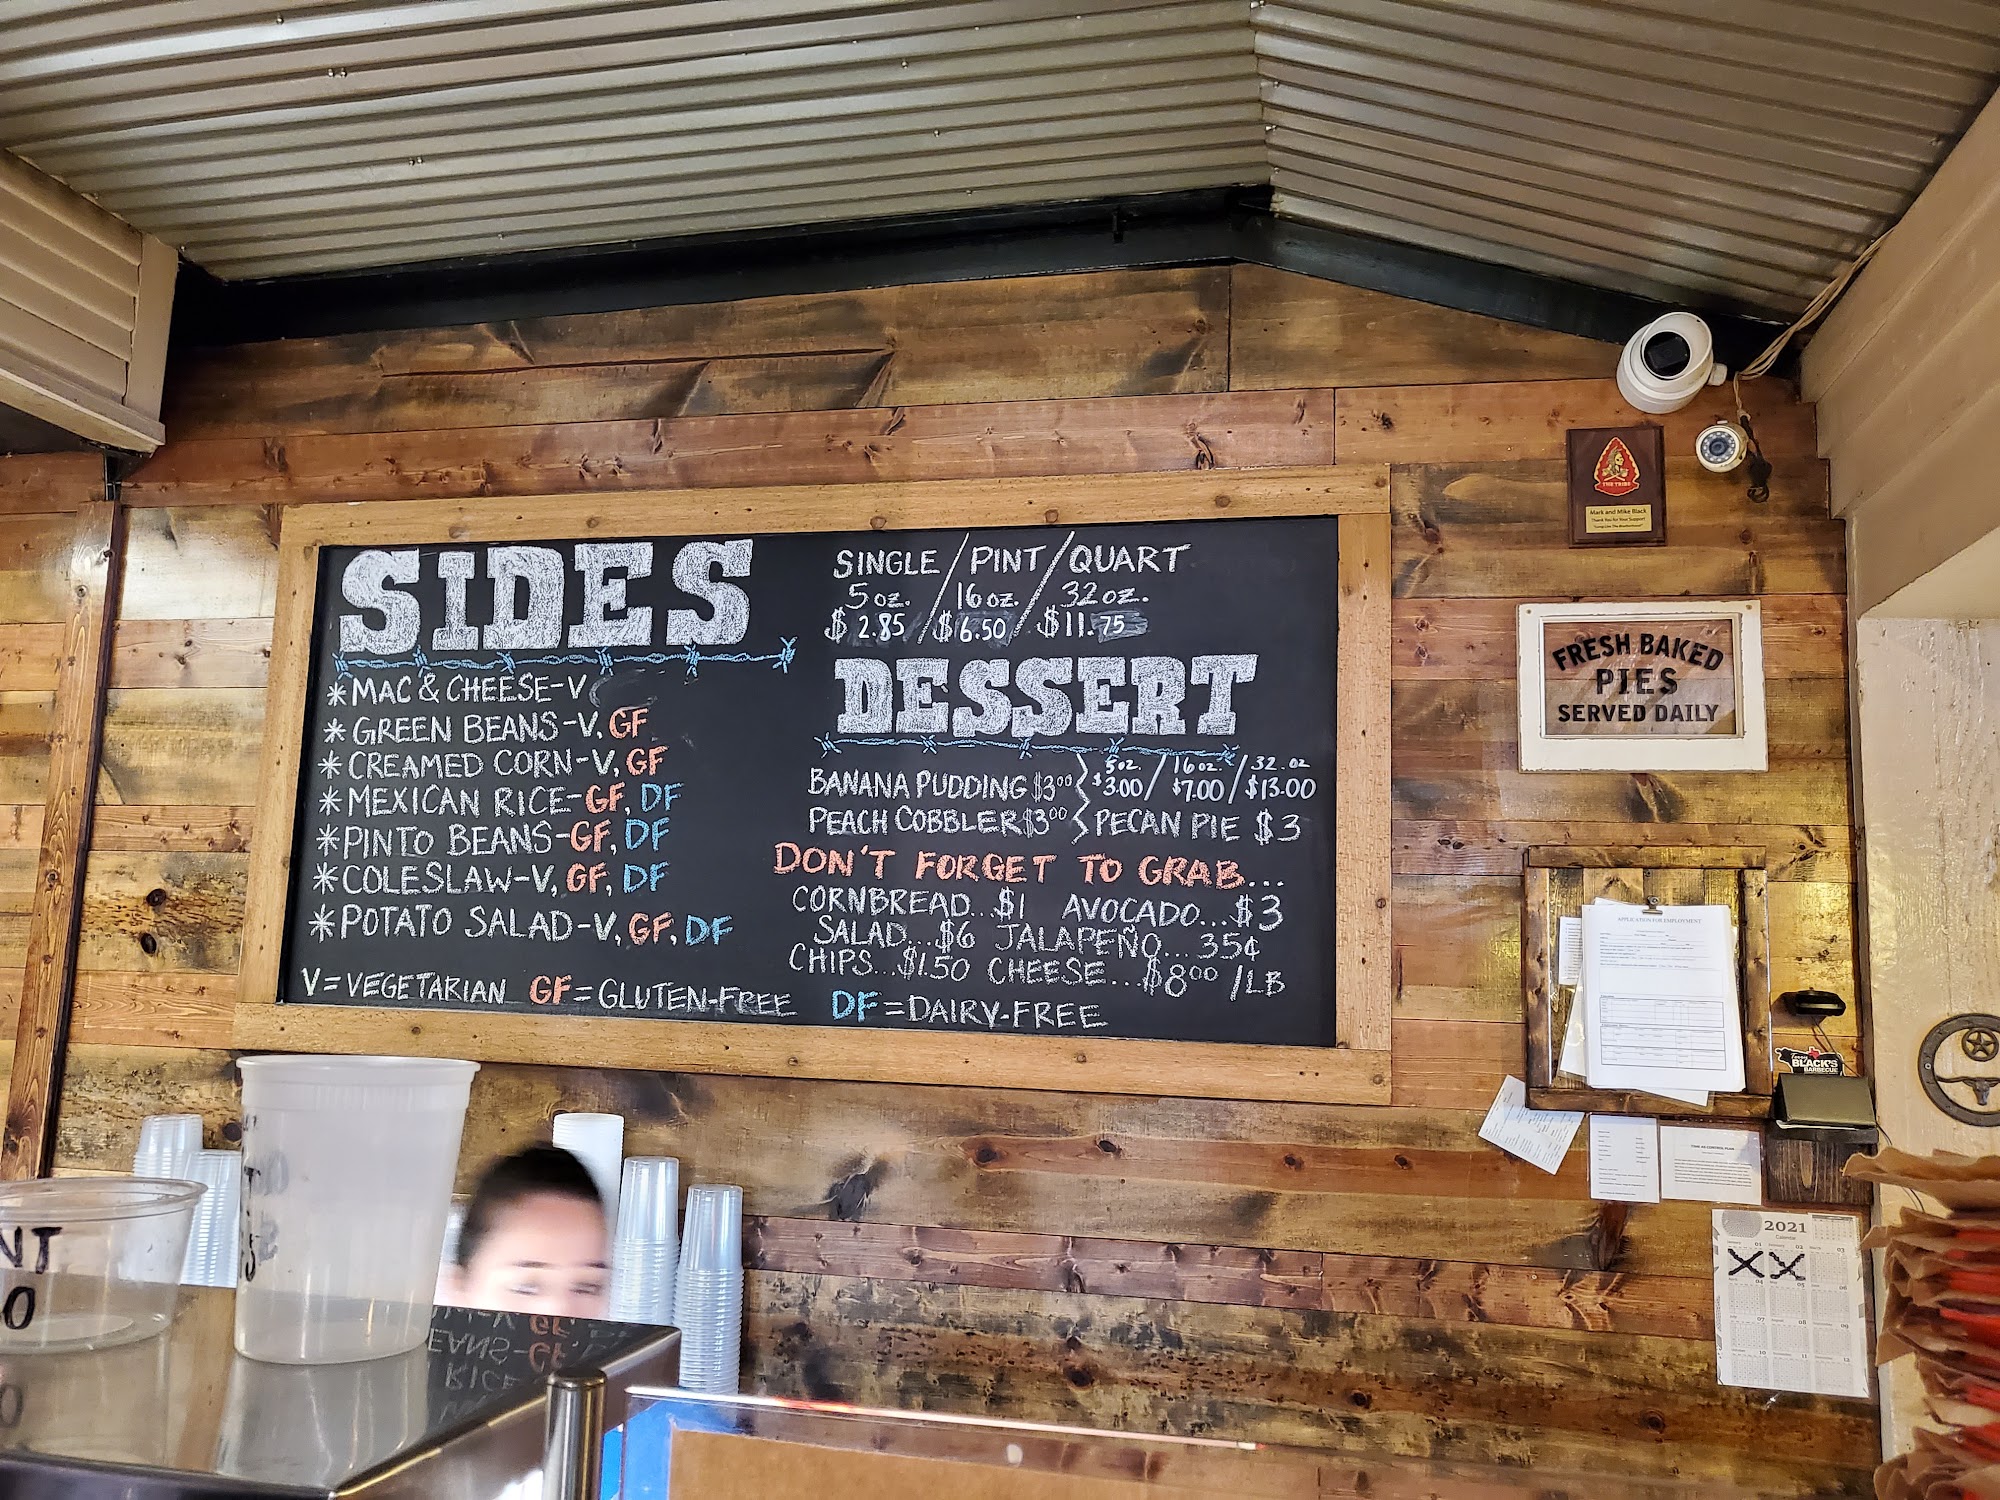 SIDES
* MAC & CHEESE-V
* GREEN BEANS-V, GF
* CREAMED CORN-V, GF
* MEXICAN RICE-GF, DF
* PINTO BEANS-GF, DF
* COLESLAW-V, GF, DF
* POTATO SALAD-V, GF, DF
V=VEGETARIAN GF=GLUTEN-FREE DF=DAIRY-FREE
SINGLE/PINT/QUART
5 oz. / 16 oz. / 32 oz.
$ 2.85 / $6.50 / $11.75
DESSERT
5oz. / 16 oz. / 32 oz
BANANA PUDDING $3.00 $3.00 / $7.00 / $13.00
PEACH COBBLER $3.00 PECAN PIE $3
DON'T FORGET TO GRAB...
CORNBREAD...$1 AVOCADO...$3
SALAD...$6 JALAPEÑO...35¢
CHIPS...$1.50 CHEESE...$8.00 /LB
THE TRIBE
Mark and Mike Black
Thank You for Your Support
FRESH BAKED
PIES
SERVED DAILY
APPLICATION FOR EMPLOYMENT
Terry
BLACK'S
BARBECUE
2021
Calendar
NT